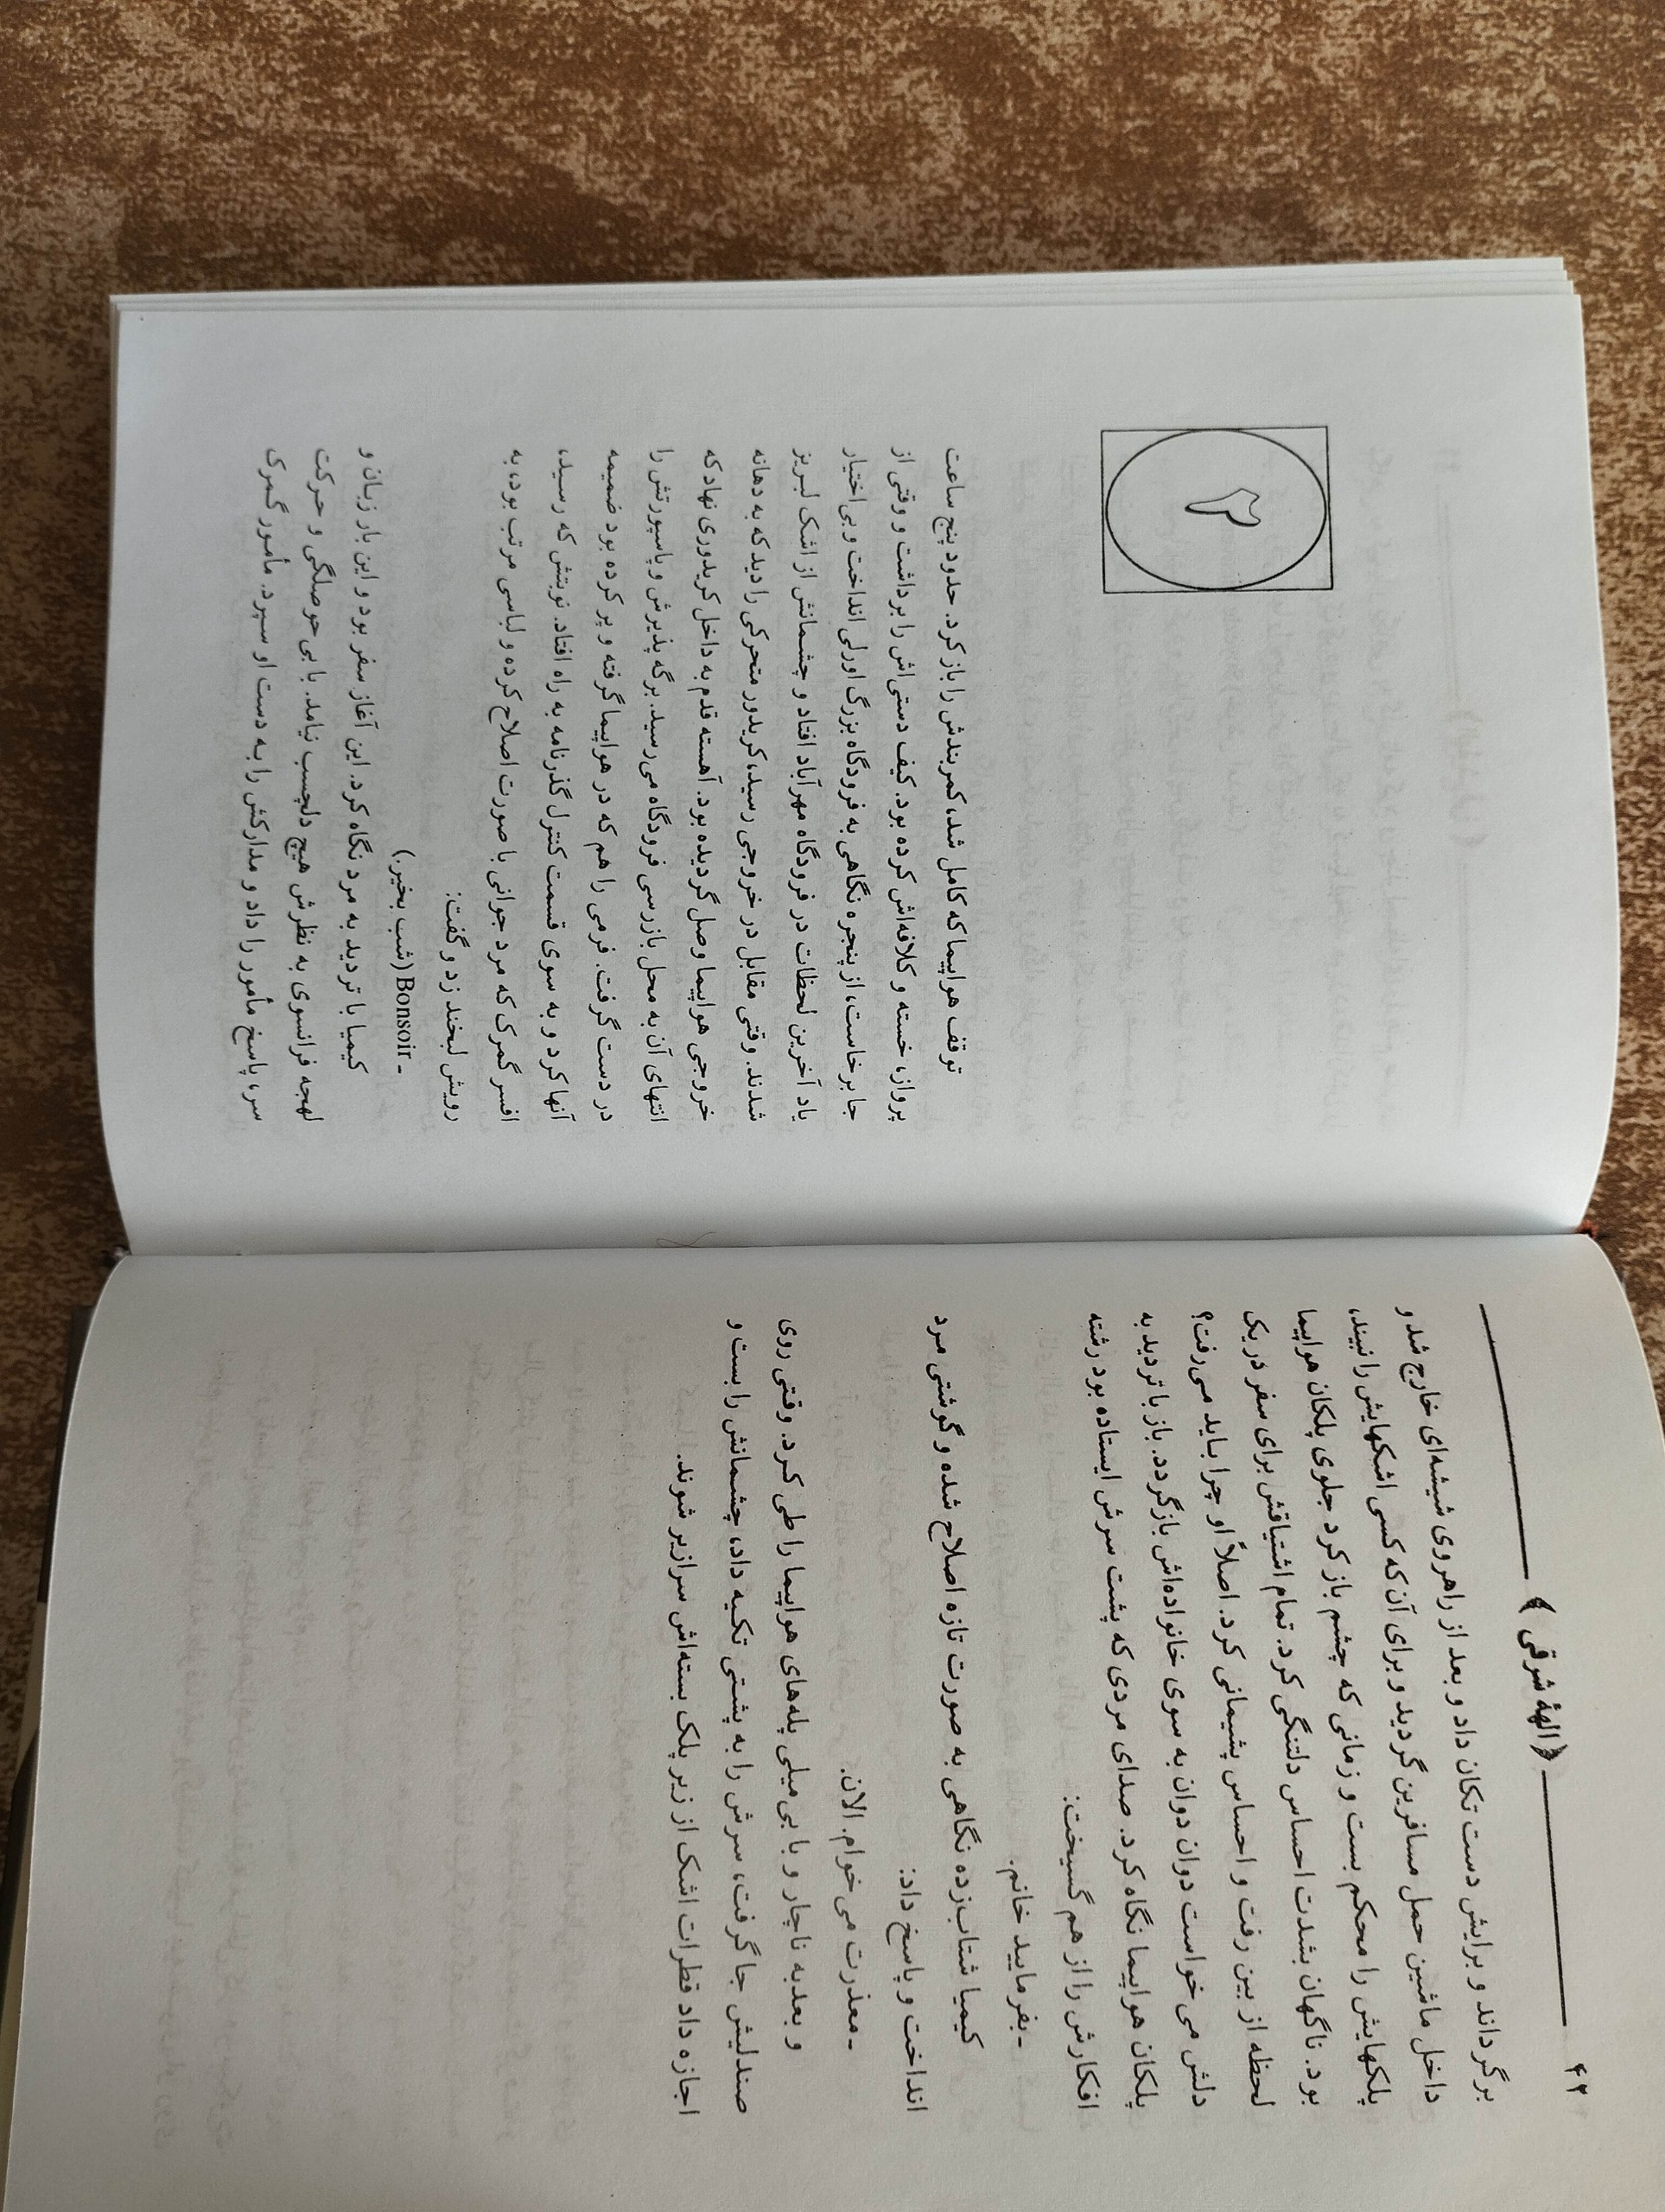 ۴۲
﴿الهۀ شرقی﴾
برگرداند و برایش دست تکان داد و بعد از راهروی شیشه‌ای خارج شد و
داخل ماشین حمل مسافرین گردید و برای آن که کسی اشکهایش را نبیند،
پلکهایش را محکم بست و زمانی که چشم باز کرد جلوی پلکان هواپیما
بود. ناگهان بشدت احساس دلتنگی کرد. تمام اشتیاقش برای سفر در یک
لحظه از بین رفت و احساس پشیمانی کرد. اصلاً او چرا باید می‌رفت؟
دلش می خواست دوان دوان به سوی خانواده‌اش بازگردد. باز با تردید به
پلکان هواپیما نگاه کرد. صدای مردی که پشت سرش ایستاده بود رشته
افکارش را از هم گسیخت:
-بفرمایید خانم.
کیمیا شتاب‌زده نگاهی به صورت تازه اصلاح شده و گوشتی مرد
انداخت و پاسخ داد:
-معذرت می خوام. الان.
و بعد به ناچار و با بی میلی پله‌های هواپیما را طی کرد. وقتی روی
صندلیش جا گرفت، سرش را به پشتی تکیه داد، چشمانش را بست و
اجازه داد قطرات اشک از زیر پلک بسته‌اش سرازیر شوند.
۲
توقف هواپیما که کامل شد، کمربندش را باز کرد. حدود پنج ساعت
پرواز، خسته و کلافه‌اش کرده بود. کیف دستی اش را برداشت و وقتی از
جا برخاست، از پنجره نگاهی به فرودگاه بزرگ اورلی انداخت و بی اختیار
یاد آخرین لحظات در فرودگاه مهرآباد افتاد و چشمانش از اشک لبریز
شدند. وقتی مقابل در خروجی رسید، کریدور متحرکی را دید که به دهانه
خروجی هواپیما وصل گردیده بود. آهسته قدم به داخل کریدوری نهاد که
انتهای آن به محل بازرسی فرودگاه می‌رسید. برگه پذیرش و پاسپورتش را
در دست گرفت. فرمی را هم که در هواپیما گرفته و پر کرده بود ضمیمه
آنها کرد و به سوی قسمت کنترل گذرنامه به راه افتاد. نوبتش که رسید،
افسر گمرک که مرد جوانی با صورت اصلاح کرده و لباسی مرتب بود، به
رویش لبخند زد و گفت:
- Bonsoir (شب بخیر.)
کیمیا با تردید به مرد نگاه کرد. این آغاز سفر بود و این بار زبان و
لهجه فرانسوی به نظرش هیچ دلچسب نیامد. با بی حوصلگی و حرکت
سر، پاسخ مأمور را داد و مدارکش را به دست او سپرد. مأمور گمرک